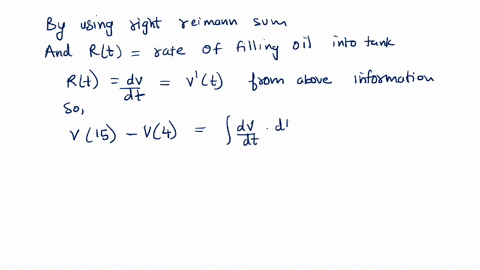 By using right reimann sum
And R(t) = rate of filling oil into tank
R(t) = dv/dt = v'(t) from above information
So,
V(15) - V(4) = ∫ dv/dt . d